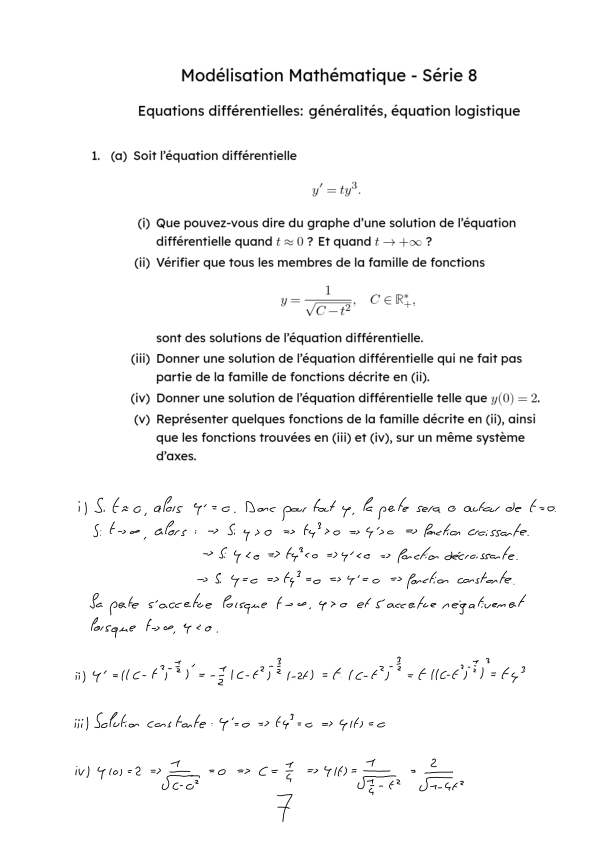 Modélisation Mathématique - Série 8
Equations différentielles: généralités, équation logistique
1. (a) Soit l'équation différentielle
y′ = ty³.
(i) Que pouvez-vous dire du graphe d'une solution de l'équation
différentielle quand t ≈ 0 ? Et quand t → +∞ ?
(ii) Vérifier que tous les membres de la famille de fonctions
y = 1/√(C − t²), C ∈ ℝ*₊,
sont des solutions de l'équation différentielle.
(iii) Donner une solution de l'équation différentielle qui ne fait pas
partie de la famille de fonctions décrite en (ii).
(iv) Donner une solution de l'équation différentielle telle que y(0) = 2.
(v) Représenter quelques fonctions de la famille décrite en (ii), ainsi
que les fonctions trouvées en (iii) et (iv), sur un même système
d'axes.
i) Si t≈0, alors y' = 0. Donc pour tout y, la pete sera 0 autour de t=0.
Si t→∞, alors : → Si y>0 => ty³>0 => y'>0 => fonction croissante.
→ Si y<0 => ty³<0 => y'<0 => fonction décroissante.
→ Si y=0 => ty³=0 => y'=0 => fonction constante.
La pete s'accetue lorsque t→∞, y>0 et s'accetue négativement
lorsque t→∞, y<0.
ii) y' = ((C-t²)^(-1/2))' = -1/2 (C-t²)^(-3/2) (-2t) = t (C-t²)^(-3/2) = t ((C-t²)^(-1/2))³ = ty³
iii) Solution constante : y'=0 => ty³=0 => y(t)=0
iv) y(0)=2 => 1/√(C-0²) = 0 => C = 1/4 => y(t) = 1/√(1/4 - t²) = 2/√(1-4t²)
7